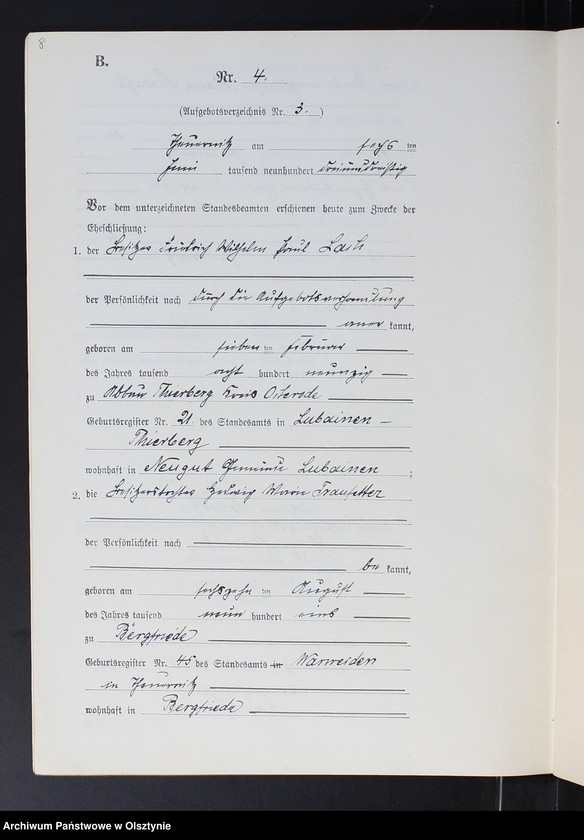 8
B.
Nr. 4.
(Aufgebotsverzeichnis Nr. 3.)
Theuernitz am sechs ten
Juni tausend neunhundert dreiunddreißig
Vor dem unterzeichneten Standesbeamten erschienen heute zum Zwecke der
Eheschließung:
1. der Besitzer Friedrich Wilhelm Paul
der Persönlichkeit nach durch die Aufgebotsverhandlung
aner kannt,
geboren am sieben ten Februar
des Jahres tausend acht hundert neunzig
zu Abbau Thierberg Kreis Osterode
Geburtsregister Nr. 21. des Standesamts in Lubainen -
Thierberg
wohnhaft in Neugut Gemeinde Lubainen ;
2. die Besitzerstochter Hedwig Marie
der Persönlichkeit nach
be kannt,
geboren am sechszehn ten August
des Jahres tausend neun hundert eins
zu Bergfriede
Geburtsregister Nr. 45 des Standesamts in Warweiden
in Theuernitz
wohnhaft in Bergfriede
Archiwum Państwowe w Olsztynie